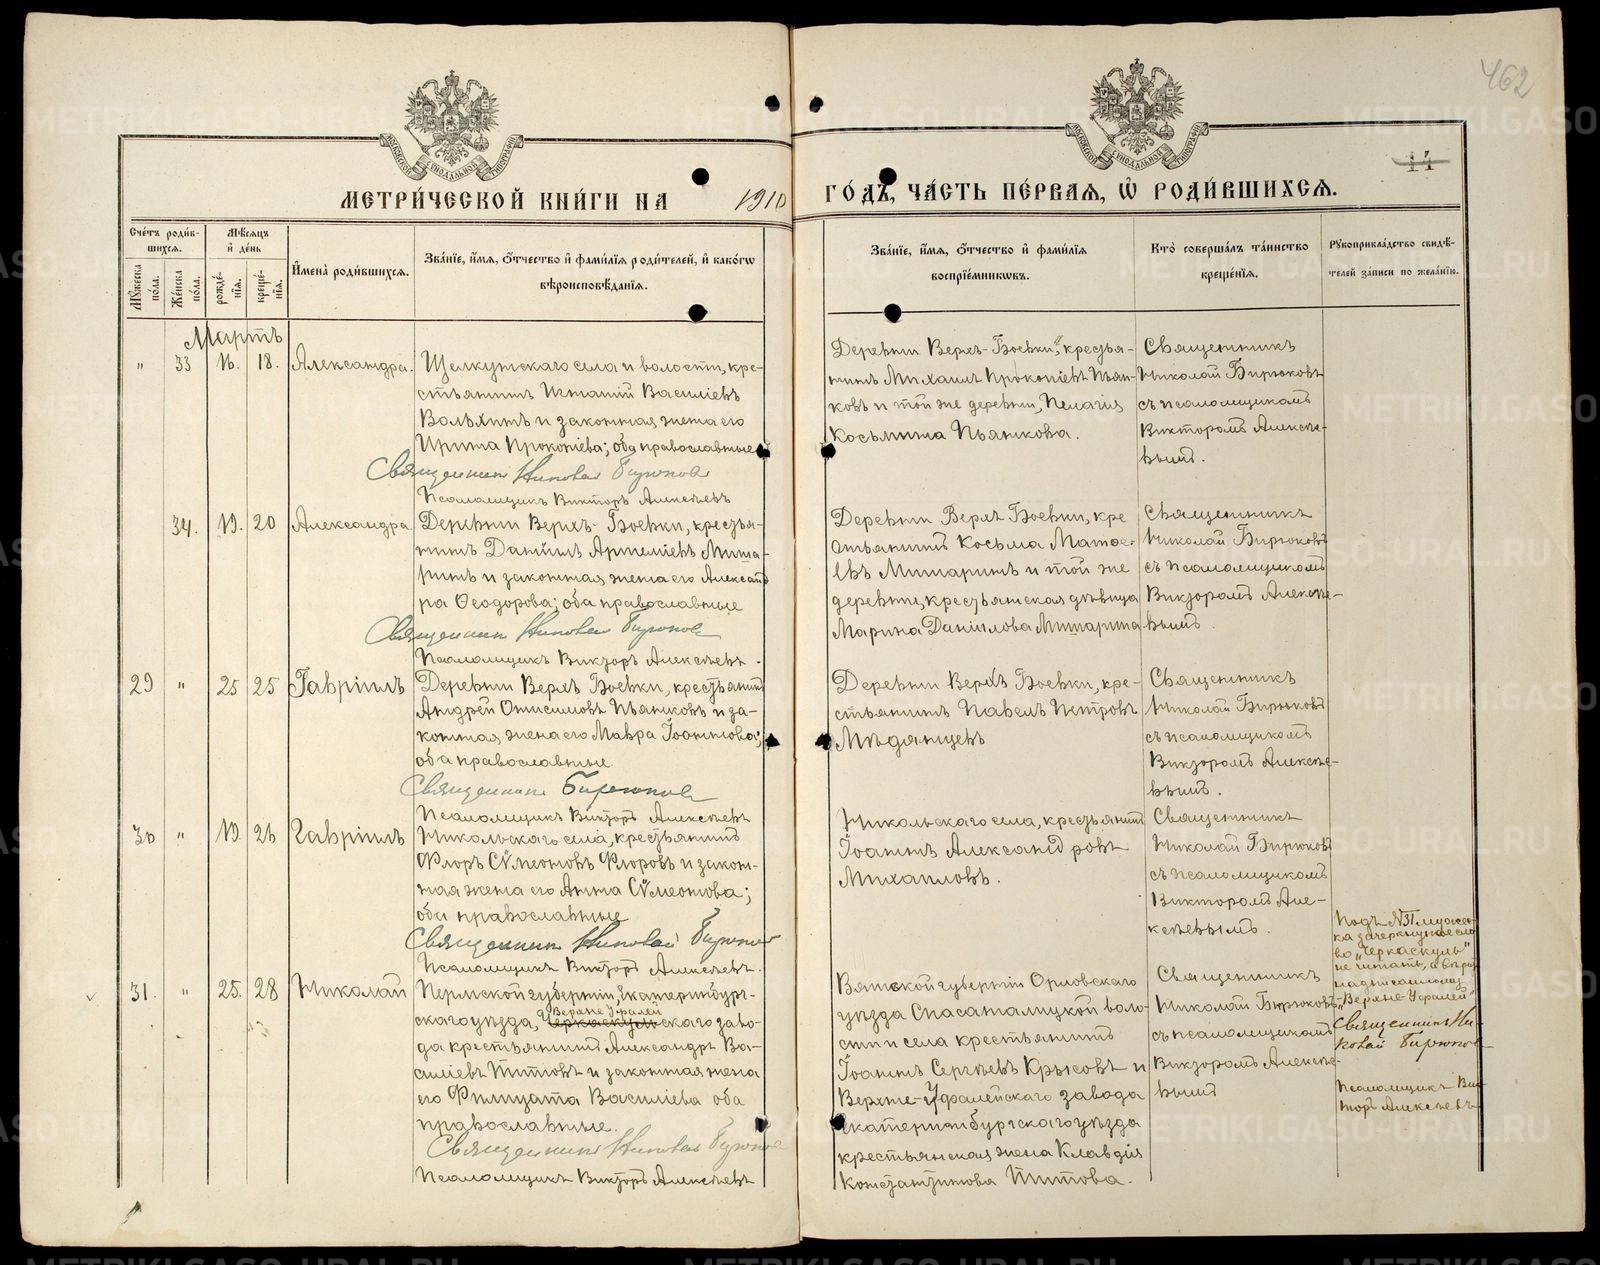 462
44
МОСКОВСКОЙ СѴНОДАЛЬНОЙ ТИПОГРАФІИ
МОСКОВСКОЙ СѴНОДАЛЬНОЙ ТИПОГРАФІИ
МЕТРИ́ЧЕСКОЙ КНИ́ГИ НА 1910
ГО́ДЪ, ЧА́СТЬ ПЕ́РВАЯ, Ѡ҆ РОДИ́ВШИХСЯ.
Сче́тъ роди́вшихся.
Му́жеска по́ла.
Же́нска по́ла.
Мѣ́сяцъ и҆ де́нь
рожде́нїя.
креще́нїя.
И҆мена̀ роди́вшихся.
Зва́нїе, и҆́мя, ѻ҆́тчество и҆ фами́лїя роди́телей, и҆ како́гѡ
вѣроисповѣ́данїя.
Зва́нїе, и҆́мя, ѻ҆́тчество и҆ фами́лїя
воспрїе́мникѡвъ.
Кто̀ соверша́лъ та́инство
креще́нїя.
Рꙋкоприкла́дство свидѣ́-
телей за́писи по жела́нїю.
Мартъ
„ 33 16. 18. Александра.
Щелкунскаго села и волости, кре-
стьянинъ Игнатій Василіевъ
Вольхинъ и законная жена его
Ирина Прокопіева; оба православные
Священник Николай Бирюков
Псаломщикъ Викторъ Алексѣевъ
Деревни Верхъ-Боевки, крестья-
нинъ Михаилъ Прокопіевъ Пьян-
ковъ и той же деревни, Пелагія
Косьмина Пьянкова.
Священникъ
Николай Бирюковъ
съ псаломщикомъ
Викторомъ Алексѣе-
вымъ.
34. 19. 20 Александра
Деревни Верхъ-Боевки, крестья-
нинъ Даніилъ Артеміевъ Миша-
ринъ и законная жена его Александ
ра Ѳеодорова; оба православные
Священник Николай Бирюков
Псаломщикъ Викторъ Алексѣевъ.
Деревни Верхъ Боевки, кре
стьянинъ Косьма Матѳе-
евъ Мишаринъ и той же
деревни, крестьянская дѣвица
Марина Даніилова Мишарина
Священникъ
Николай Бирюковъ
съ псаломщикомъ
Викторомъ Алексѣе-
вымъ.
29 „ 25 25 Гавріилъ
Деревни Верхъ Боевки, крестьянинъ
Андрей Онисимовъ Пьянковъ и за-
конная жена его Мавра Іоаннова;
оба православные
Священник Бирюков
Псаломщикъ Викторъ Алексѣевъ
Деревни Верхъ Боевки, кре-
стьянинъ Павелъ Петровъ
Мѣдянцевъ
Священникъ
Николай Бирюковъ
съ псаломщикомъ
Викторомъ Алексѣе-
вымъ.
30 „ 19. 26 Гавріилъ
Никольскаго села, крестьянинъ
Флоръ Сѵмеоновъ Флоровъ и закон-
ная жена его Анна Сѵмеонова;
оба православные
Священник Николай Бирюков
Псаломщикъ Викторъ Алексѣевъ.
Никольскаго села, крестьянинъ
Іоаннъ Александровъ
Михаиловъ.
Священникъ
Николай Бирюковъ
съ псаломщикомъ
Викторомъ Але-
ксѣевымъ.
31. „ 25. 28 Николай
Пермской губерніи, Екатеринбург-
Верхне-Уфалей
скаго уѣзда, Черкаскульскаго заво-
да крестьянинъ Александръ Ва-
силіевъ Титовъ и законная жена
его Филицата Василіева оба
православные.
Священник Николай Бирюков
Псаломщикъ Викторъ Алексѣевъ
Вятской губерніи Орловскаго
уѣзда Спасаталицкой воло-
сти и села крестьянинъ
Іоаннъ Сергѣевъ Крысовъ и
Верхне-Уфалейскаго завода
Екатеринбургскаго уѣзда
крестьянская жена Клавдія
Константинова Титова.
Священникъ
Николай Бирюковъ
съ псаломщикомъ
Викторомъ Алексѣе-
вымъ
Подъ №31 мужес-
ка зачеркнутое сло
во „Черкаскуль"
не читать, а вѣрой
надписанному
„Верхне-Уфалей"
Священникъ Ни-
колай Бирюков
Псаломщикъ Вик-
торъ Алексѣевъ
METRIKI.GASO-URAL.RU